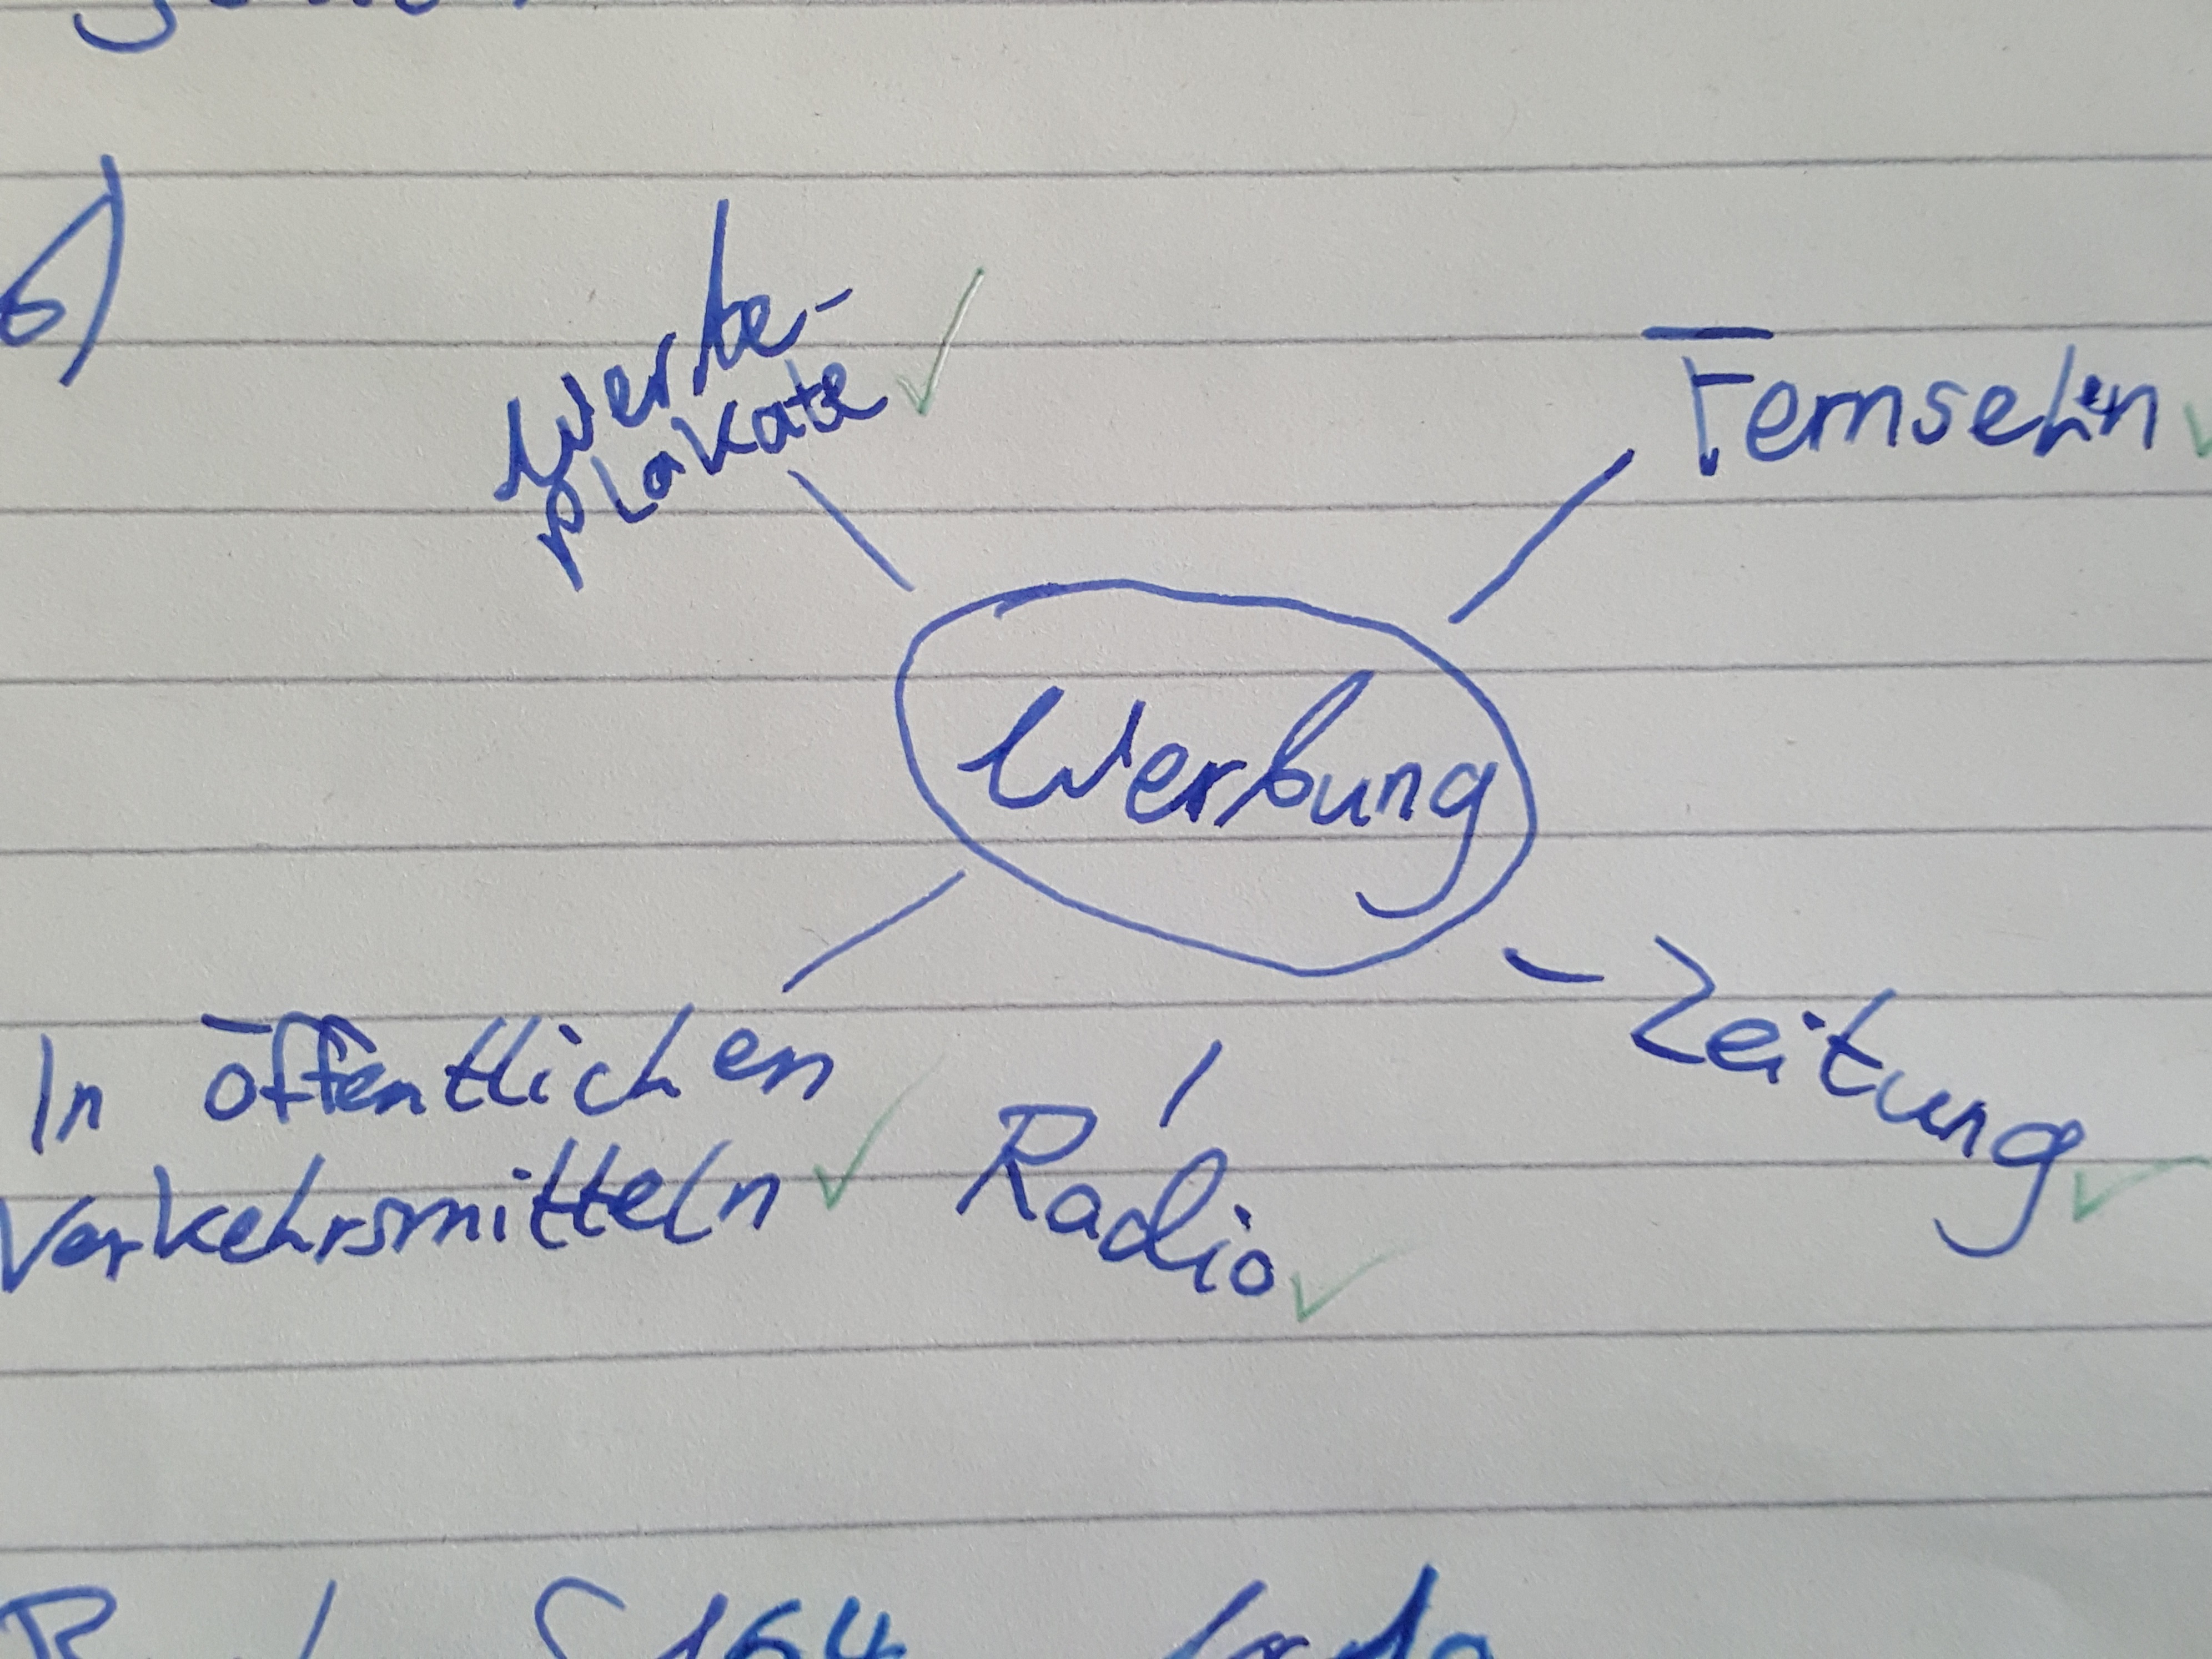 6)
Werbe-
plakate
Fernsehen
Werbung
In öffentlichen
Verkehrsmitteln
Radio
Zeitung